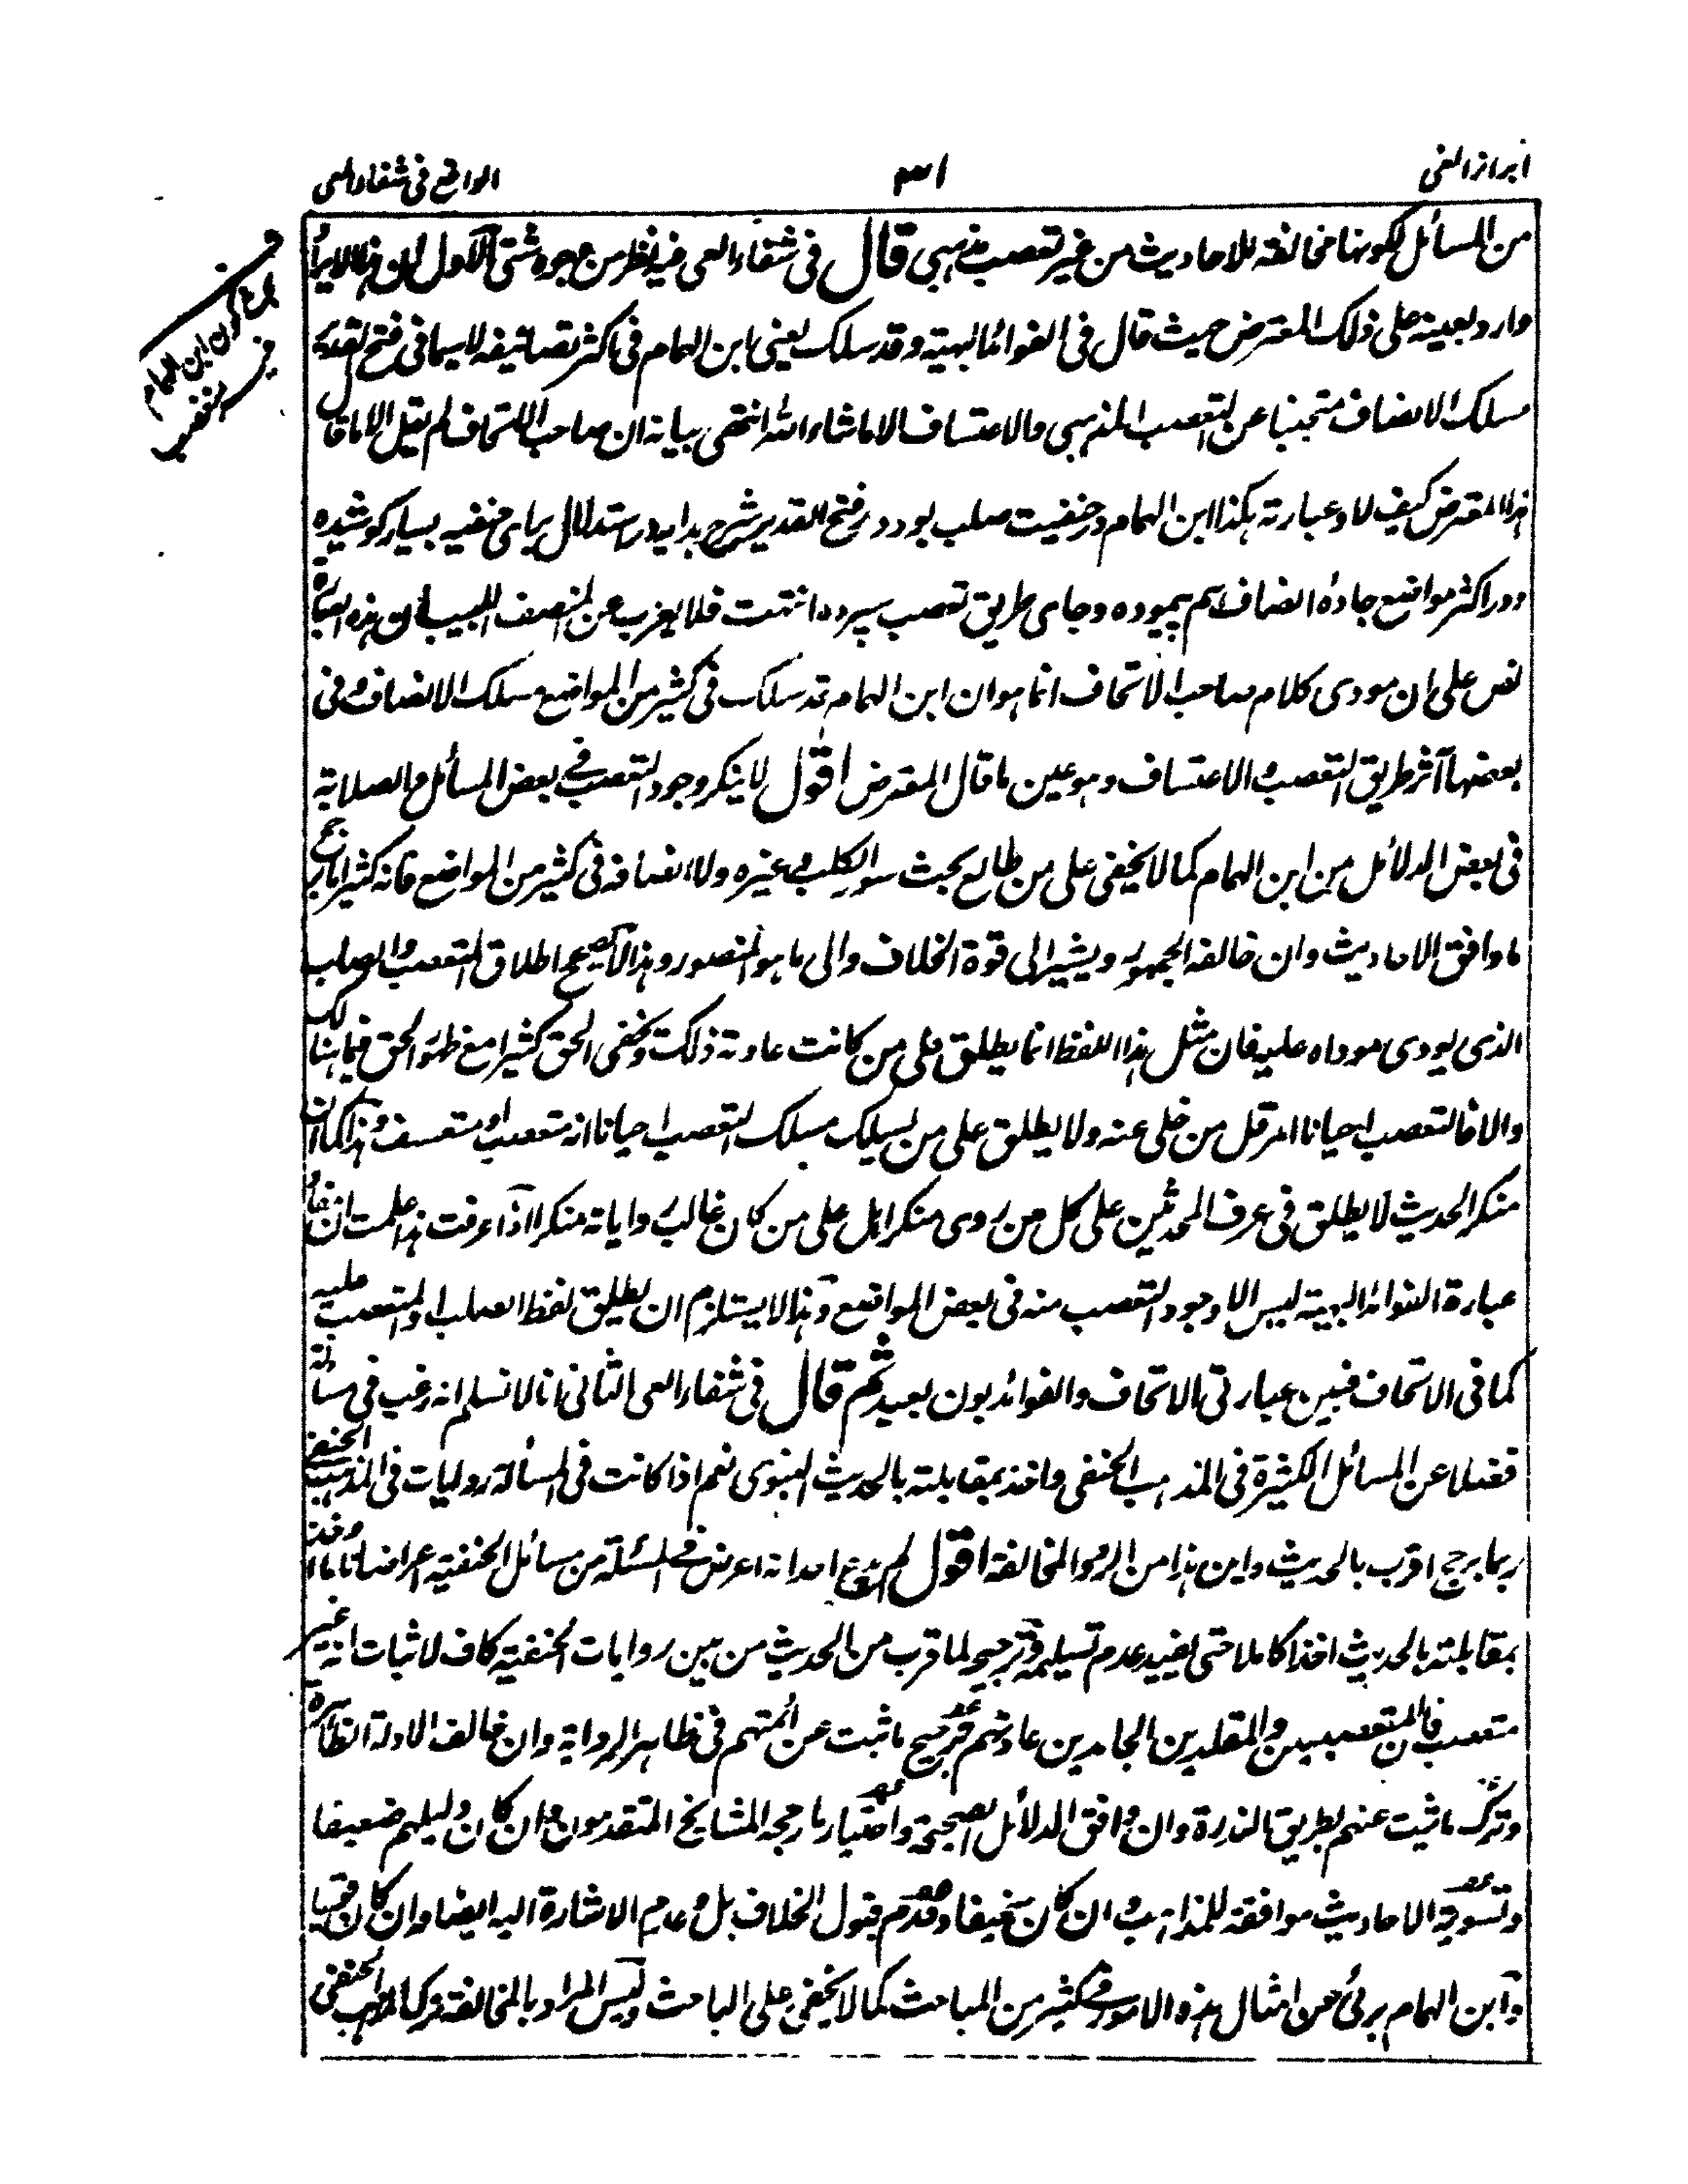 ابراز الغی
١٣١
الواقع فی شفاء العی
من المسائل لکونہا مخالفة للاحادیث من غیر تعصب مذہبی قال فی شفاء العی فیہ نظر من وجوہ شتی الاول ان ہذا الایراد
وارد بعینہ علی ذلک المعترض حیث قال فی الفوائد البہیة وقد سلک یعنی ابن الہمام فی اکثر تصانیفہ لاسیما فی فتح القدیر
مسلک الانصاف متجنبا عن التعصب المذہبی والاعتساف الا ما شاء اللہ انتہی بیانہ ان صاحب الاتحاف لم یقل الا ما قال
ہذا المعترض کیف لا وعبارتہ ہکذا ابن الہمام در حنفیت صلب بود ودر فتح القدیر شرح ہدایہ در استدلال برای حنفیہ بسیار کوشیدہ
ودر اکثر مواضع جادہ انصاف ہم پیمودہ وجای طریق تعصب سپردہ انتہت فلا یعزب عن المنصف اللبیب ان ہذہ العبارة
نص علی ان مودی کلام صاحب الاتحاف انما ہو ان ابن الہمام قد سلک فی کثیر من المواضع مسلک الانصاف وفی
بعضہا آثر طریق التعصب والاعتساف وہو عین ما قال المعترض اقول لا ینکر وجود التعصب فی بعض المسائل والصلابة
فی بعض الدلائل من ابن الہمام کما لا یخفی علی من طالع بحث سور الکلب وغیرہ ولا انصافہ فی کثیر من المواضع فانہ کثیرا ما یرجح
ما وافق الاحادیث وان خالفہ الجمہور ویشیر الی قوة الخلاف والی ما ہو المنصور وہذا لا یصح اطلاق المتعصب والصلب
الذی یودی موداہ علیہ فان مثل ہذا اللفظ انما یطلق علی من کانت عادتہ ذلک ویخفی الحق کثیرا مع ظہور الحق فیما ہنالک
والا فالتعصب احیانا امر قل من خلی عنہ ولا یطلق علی من یسلک مسلک التعصب احیانا انہ متعصب او متعسف وہذا کما ان
منکر الحدیث لا یطلق فی عرف المحدثین علی کل من روی منکرا بل علی من کان غالب روایاتہ منکرا اذا عرفت ہذا علمت ان مفاد
عبارة الفوائد البہیة لیس الا وجود التعصب منہ فی بعض المواضع وہذا لا یستلزم ان یطلق لفظ الصلب او المتعصب علیہ
کما فی الاتحاف فبین عبارتی الاتحاف والفوائد بون بعید ثم قال فی شفاء العی الثانی انا لا نسلم انہ رغب فی مسألة
فضلا عن المسائل الکثیرة فی المذہب الحنفی واخذ بمقابلتہ بالحدیث النبوی نعم اذا کانت فی المسألة روایات فی المذہب الحنفی
ربما یرجح اقرب بالحدیث واین ہذا من الرد والمخالفة اقول لم یدع احد انہ اعرض فی المسئلة من مسائل الحنفیة اعراضا تاما واخذ
بمقابلتہ بالحدیث اخذا کاملا حتی یفید عدم تسلیمہ وترجیح لما قرب من الحدیث من بین روایات الحنفیة کاف لاثبات انہ غیر
متعصب فان المتعصبین والمقلدین الجامدین عادتہم ترجیح ما ثبت عن ائمتہم فی ظاہر الروایة وان خالف الادلة الظاہرة
وترک ما ثبت عنہم بطریق الندرة وان وافق الدلائل الصحیحة واختیار ما رجحہ المشایخ المتقدمون وان کان دلیلہم ضعیفا
وتسویة الاحادیث موافقة للمذاہب وان کان سخیفا وعدم قبول الخلاف بل وعدم الاشارة الیہ ایضا وان کان قویا
وابن الہمام بریٔ عن امثال ہذہ الامور فی کثیر من المباحث کما لا یخفی علی الباحث ولیس المراد بالمخالفة ترکہ المذہب الحنفی